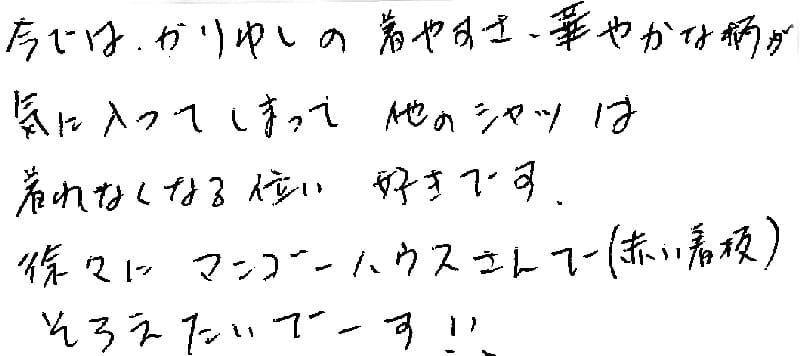 今では、かりゆしの着やすさ、華やかな柄が
気に入ってしまって 他のシャツは
着れなくなる位い 好きです。
徐々に マンゴーハウスさんで(赤い看板)
そろえたいでーす!!